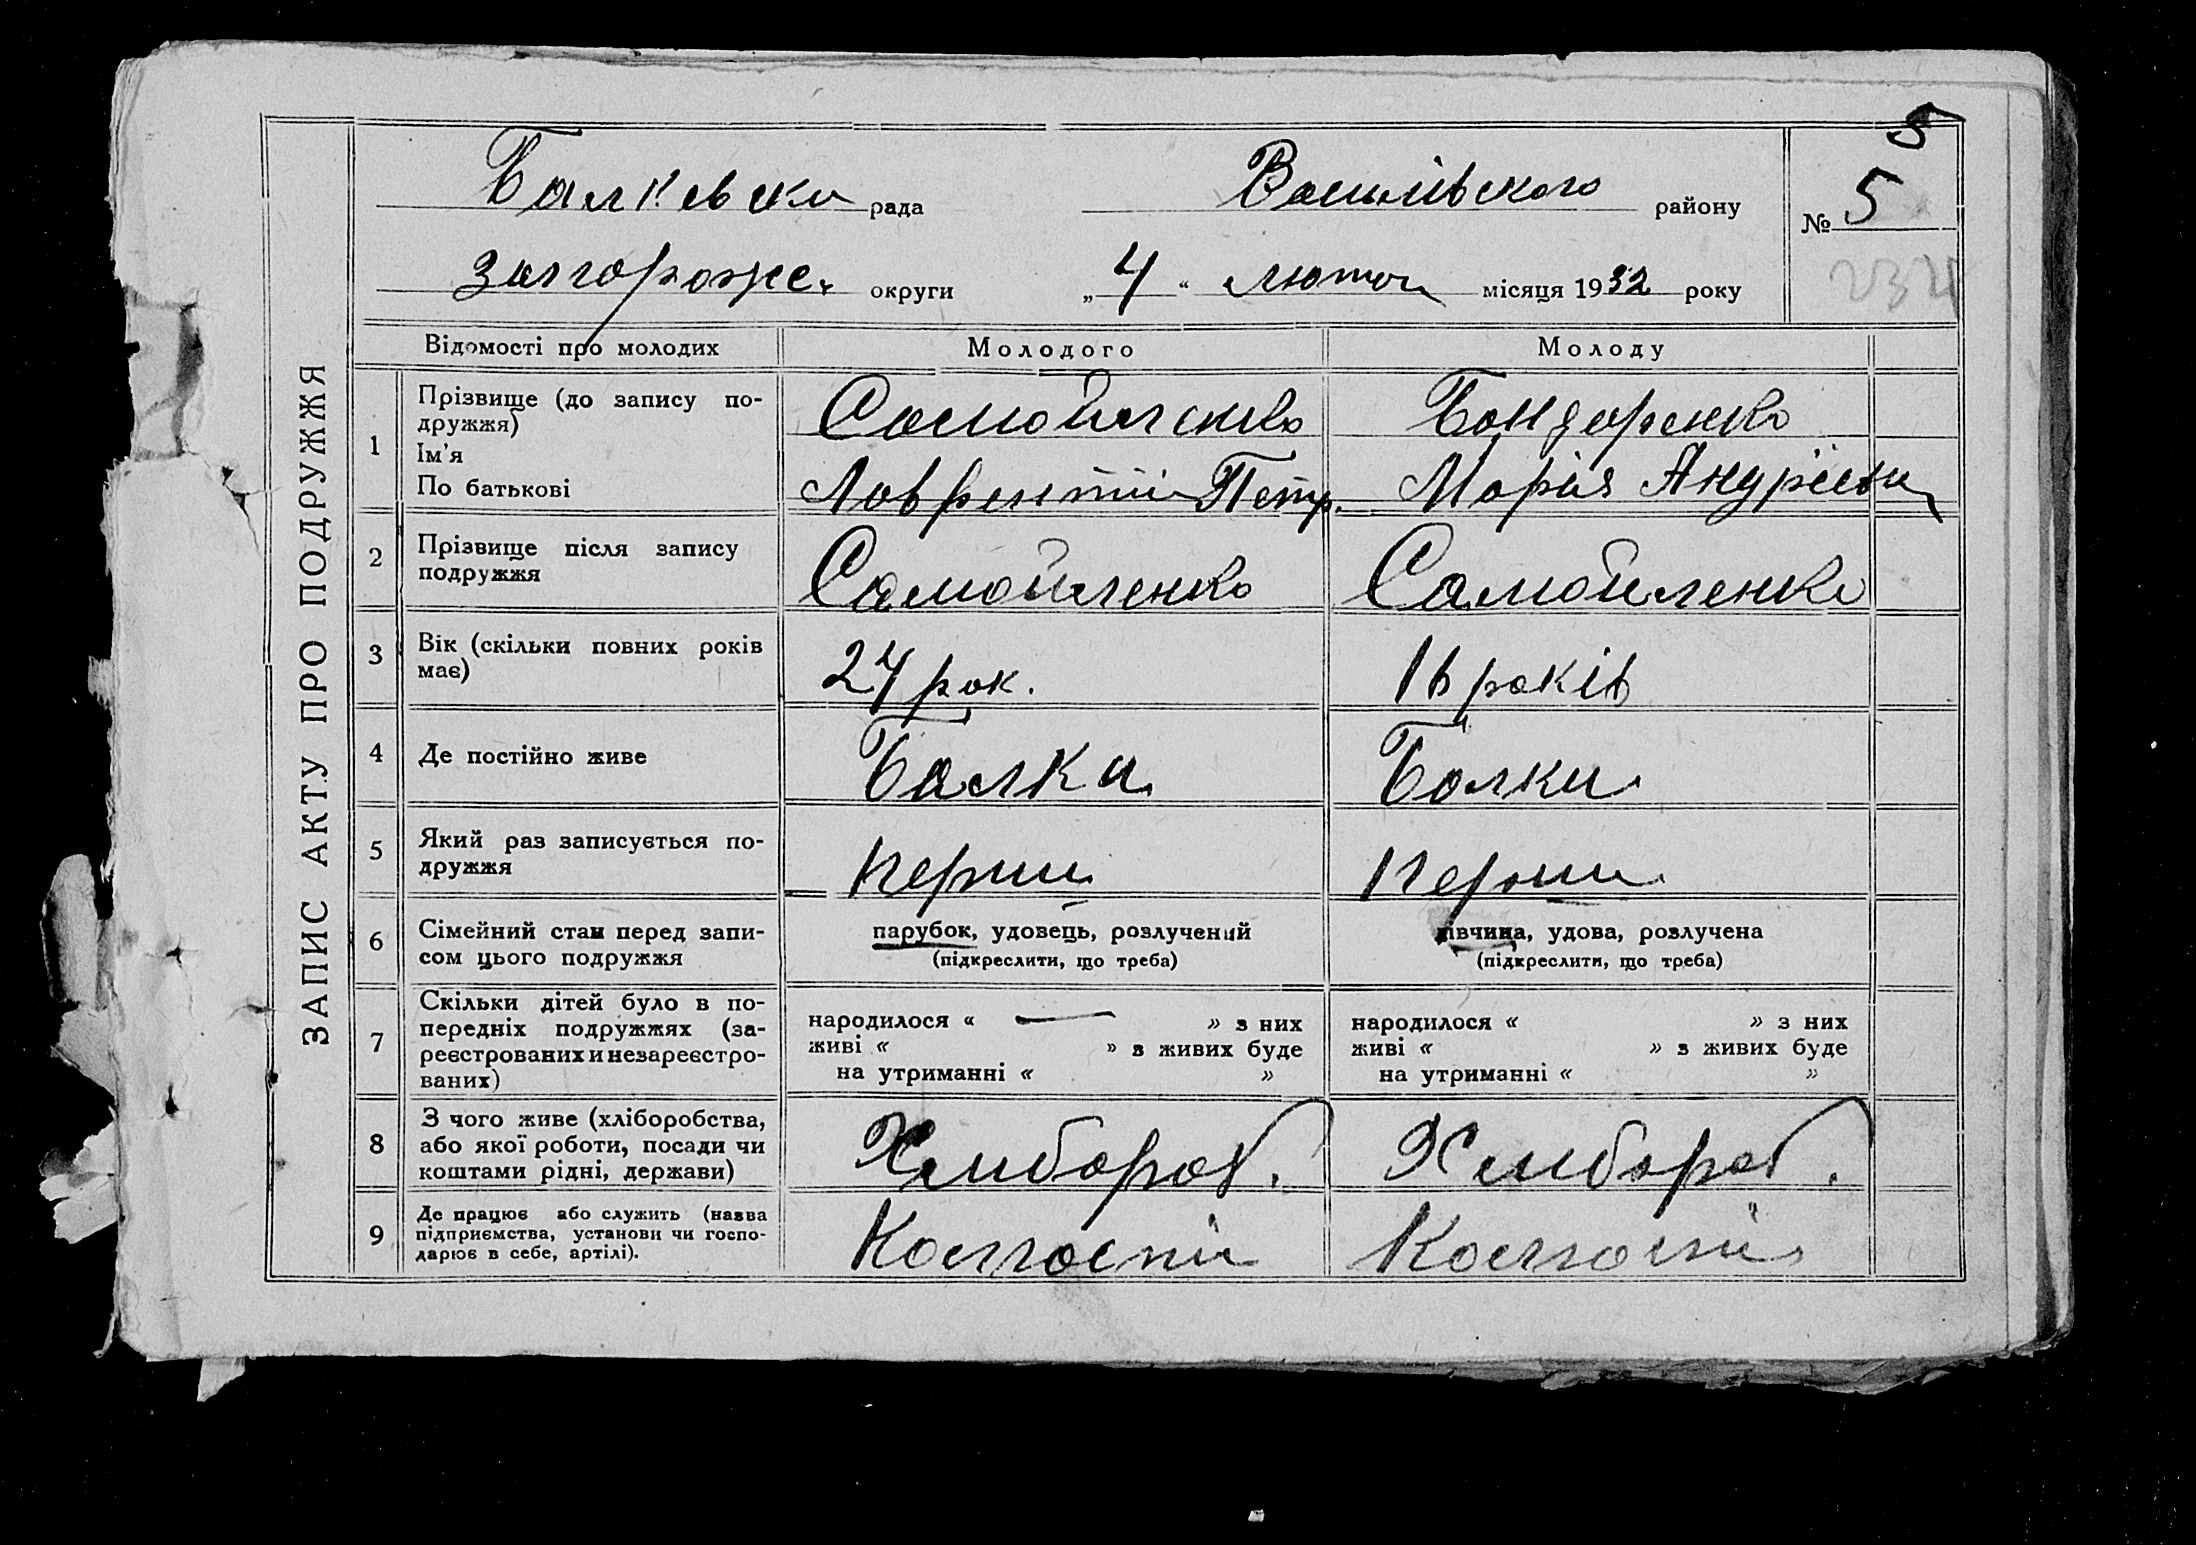 5
Балківска рада Василівського району № 5
запорожс. округи „4“ лютого місяця 1932 року
ЗАПИС АКТУ ПРО ПОДРУЖЖЯ
Відомості про молодих Молодого Молоду
1 Прізвище (до запису по-
дружжя) Самойленко Бондаренко
Ім'я
По батькові Лаврентій Петр. Марія Андріевна
2 Прізвище після запису
подружжя Самойленко Самойленко
3 Вік (скільки повних років
має) 24 рок. 18 років
4 Де постійно живе Балки Балки
5 Який раз записується по-
дружжя перши перши
6 Сімейний стан перед запи-
сом цього подружжя
парубок, удовець, розлучений
(підкреслити, що треба)
дівчина, удова, розлучена
(підкреслити, що треба)
7 Скільки дітей було в по-
передніх подружжях (за-
реєстрованих и незареєстро-
ваних)
народилося « — » з них
живі « » з живих буде
на утриманні « »
народилося « » з них
живі « » з живих буде
на утриманні « »
8 З чого живе (хліборобства,
або якої роботи, посади чи
коштами рідні, держави) Хлибороб. Хлибороб.
9 Де працює або служить (назва
підприємства, установи чи госпо-
дарює в себе, артілі).